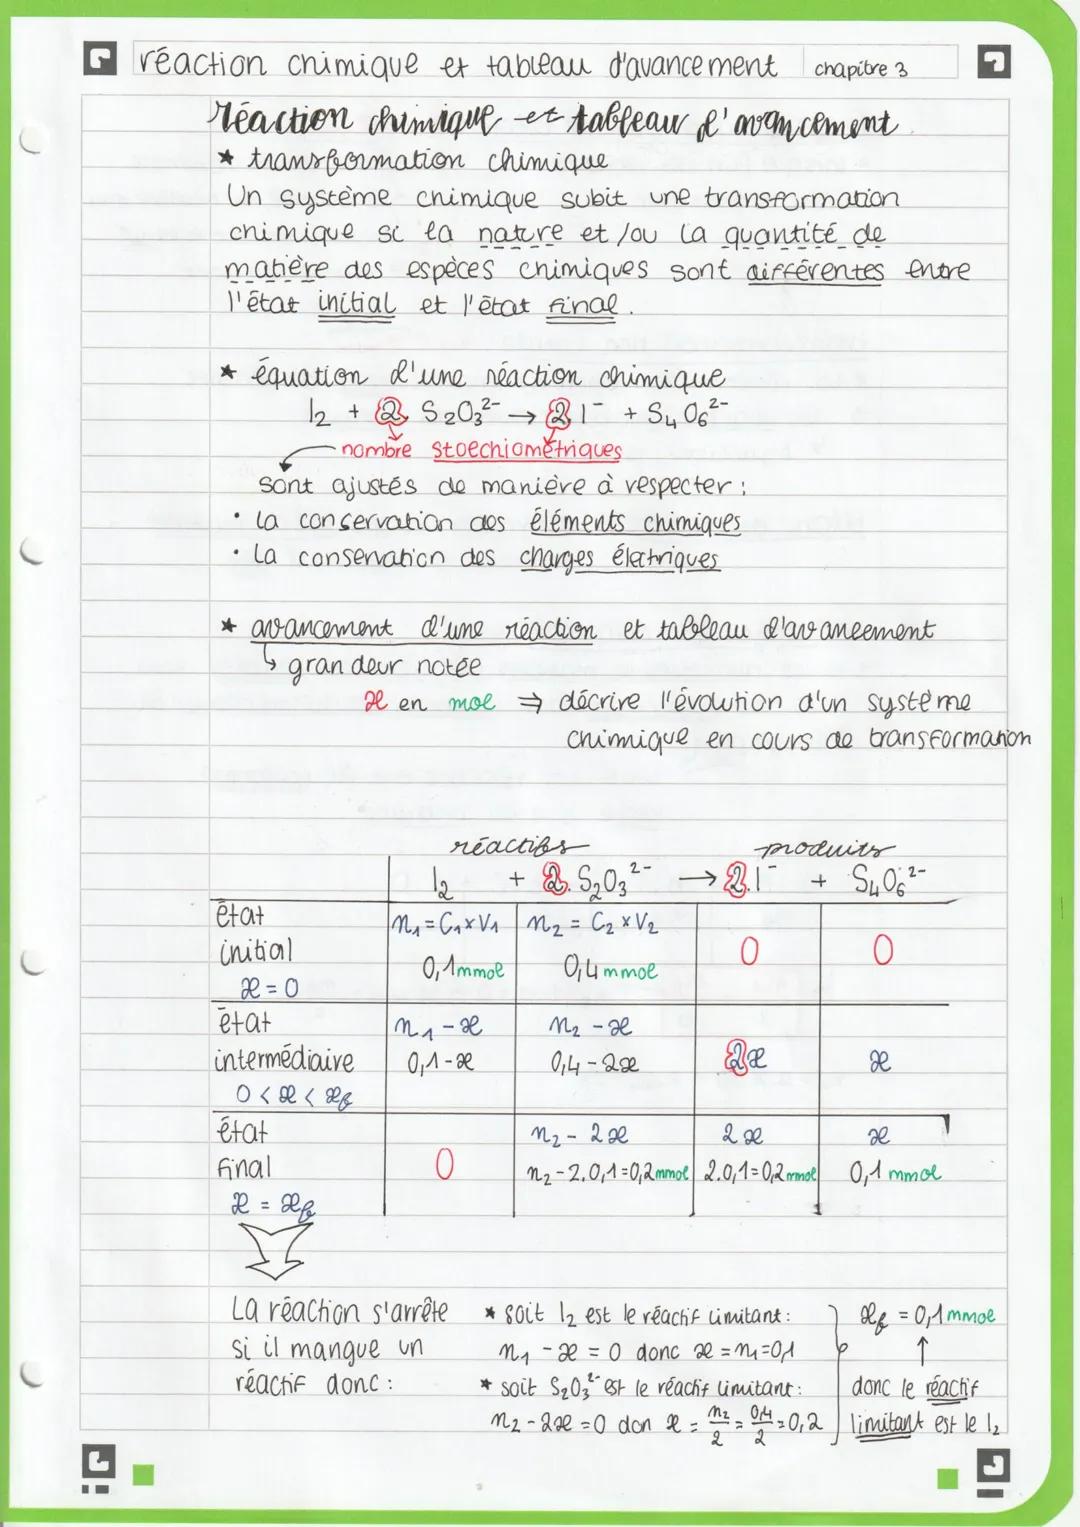 réaction chimique et tableau d'avancement chapitre 3
réaction chimique et tableau d'avancement.
* transformation chimique
Un système chimique subit une transformation
chimique si la nature et/ou la quantité de
matière des espèces chimiques sont différentes entre
l'état initial et l'état final.
* équation d'une réaction chimique
I₂ + 2 S₂O₃²⁻ → 2 I⁻ + S₄O₆²⁻
nombre stoechiométriques
sont ajustés de manière à respecter :
• la conservation des éléments chimiques
• La conservation des charges électriques
* avancement d'une réaction et tableau d'avancement
↳ grandeur notée
x en mol ⇒ décrire l'évolution d'un système
chimique en cours de transformation
réactifs produits
I₂ + 2. S₂O₃²⁻ → 2.I⁻ + S₄O₆²⁻
état n₁ = C₁×V₁ n₂ = C₂×V₂
initial 0,1mmol 0,4mmol 0 0
x = 0
état n₁ - x n₂ - x
intermédiaire 0,1-x 0,4-2x 2x x
0 < x < xf
état n₂ - 2x 2x x
final 0 n₂-2.0,1=0,2mmol 2.0,1=0,2mmol 0,1 mmol
x = xf
La réaction s'arrête * soit I₂ est le réactif limitant : xf = 0,1mmol
si il manque un n₁ - x = 0 donc x = n₁=0,1 ↑
réactif donc : * soit S₂O₃²⁻ est le réactif limitant : donc le réactif
n₂-2x=0 don x = n₂/2 = 0,4/2 = 0,2 limitant est le I₂